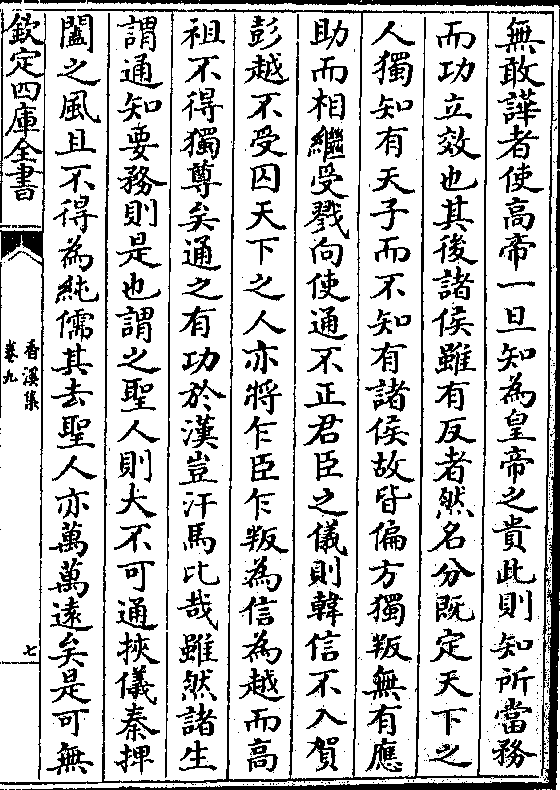 無敢譁者使高帝一旦知為皇帝之貴此則知所當務
而功立效也其後諸侯雖有反者然名分既定天下之
人獨知有天子而不知有諸侯故皆偏方獨叛無有應
助而相繼受戮向使通不正君臣之儀則韓信不入賀
彭越不受囚天下之人亦將乍臣乍叛為信為越而高
祖不得獨尊矣通之有功於漢豈汗馬比哉雖然諸生
謂通知要務則是也謂之聖人則大不可通挾儀秦押
闔之風且不得為純儒其去聖人亦萬萬遠矣是可無
欽定四庫全書
香溪集
卷九
七